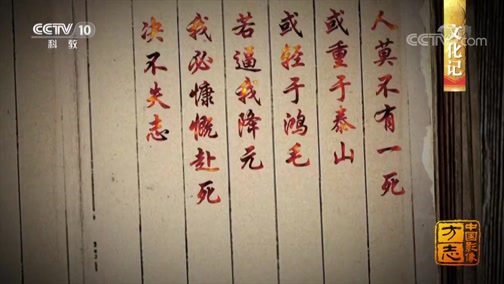 CCTV 10
科教
CCTV.com
文化记
人莫不有一死
或重于泰山
或轻于鸿毛
若逼我降元
我必慷慨赴死
决不失志
中国影像
方志